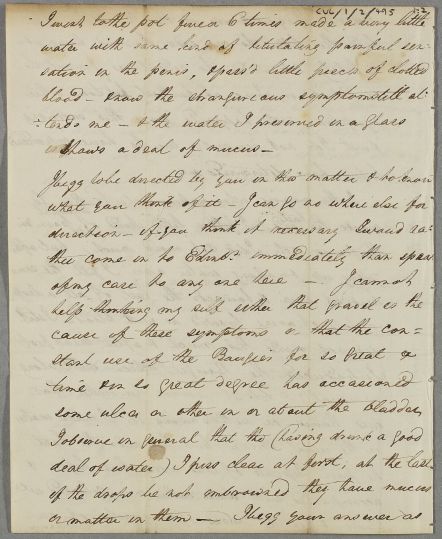 CUL/1/2/495 p.2
I went to the pot five or 6 times made a very little
water with same kind of titulating painful sen-
sation in the penis, & pass'd little pieces of clotted
blood - & now the strangureous symptoms still at-
-tends me - & the water I preserved in a glass
shaws a deal of mucus -
I begg to be directed by you in this matter & to know
what you think of it - I can go no where else for
direction - if you think it necessary I woud ra-
ther come in to Edinbr. immediately than
my case to any one here - I cannot
help thinking my self either that gravel is the
cause of these symptoms or that the con-
stant use of the Baugies for so great a
time & in so great degree has occasioned
some ulcer or other in or about the bladder
I observe in general that tho (having drunk a good
deal of water) I piss clear at first, at the last
if the drops be not embrowned they have mucus
or matter in them - I begg your answer as